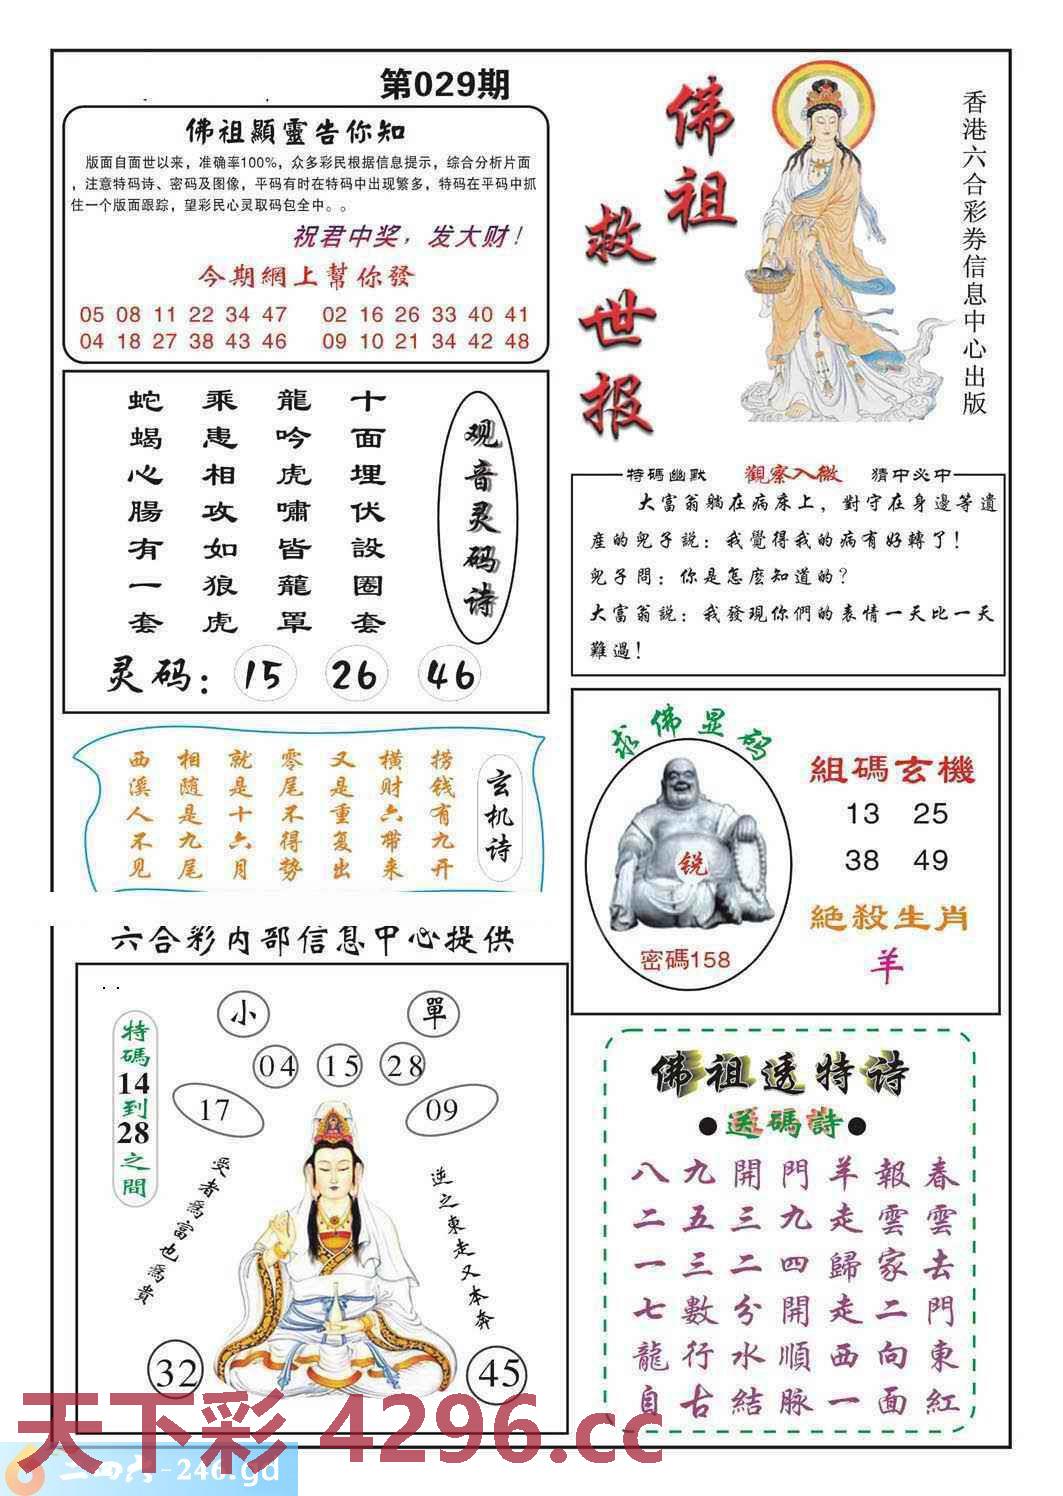 第029期
佛祖顯靈告你知
版面自面世以来，准确率100%，众多彩民根据信息提示，综合分析片面
，注意特码诗、密码及图像，平码有时在特码中出现繁多，特码在平码中抓
住一个版面跟踪，望彩民心灵取码包全中。。
祝君中奖，发大财！
今期網上幫你發
05 08 11 22 34 47 02 16 26 33 40 41
04 18 27 38 43 46 09 10 21 34 42 48
佛祖
救世报
香港六合彩券信息中心出版
观音灵码诗
十面埋伏設圈套
龍吟虎嘯皆籠罩
乘患相攻如狼虎
蛇蝎心腸有一套
灵码：15 26 46
特碼幽默 觀察入微 猜中必中
大富翁躺在病床上，對守在身邊等遺
産的兒子説：我覺得我的病有好轉了！
兒子問：你是怎麽知道的？
大富翁説：我發現你們的表情一天比一天
難過！
玄机诗
捞钱有九开
横财六带来
又是重复出
零尾不得势
就是十六月
相随是九尾
西溪人不见
求佛显码
锐
密碼158
組碼玄機
13 25
38 49
絶殺生肖
羊
六合彩内部信息中心提供
小 單
04 15 28
17 09
特碼14到28之間
受者爲富也爲貴
逆之東走又本奔
32 45
佛祖透特诗
●送碼詩●
八九開門羊報春
二五三九走雲雲
一三二四歸家去
七數分開走二門
龍行水順西向東
自古結脉一面紅
天下彩 4296.cc
二四六-246.gd